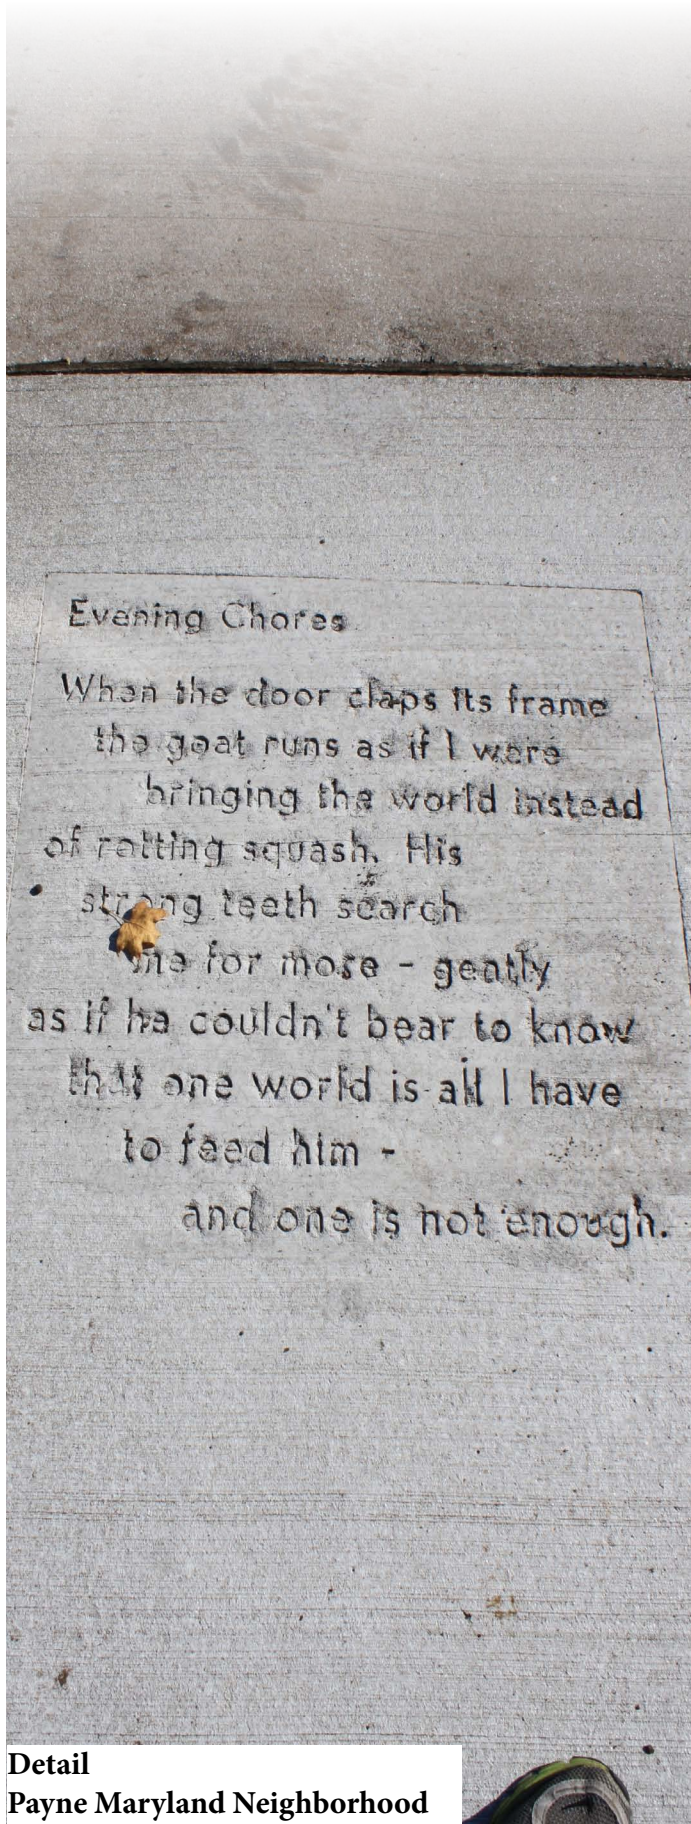 Evening Chores
When the door claps its frame
the goat runs as if I were
bringing the world instead
of rotting squash. His
strong teeth search
me for more - gently
as if he couldn't bear to know
that one world is all I have
to feed him -
and one is not enough.
Detail
Payne Maryland Neighborhood